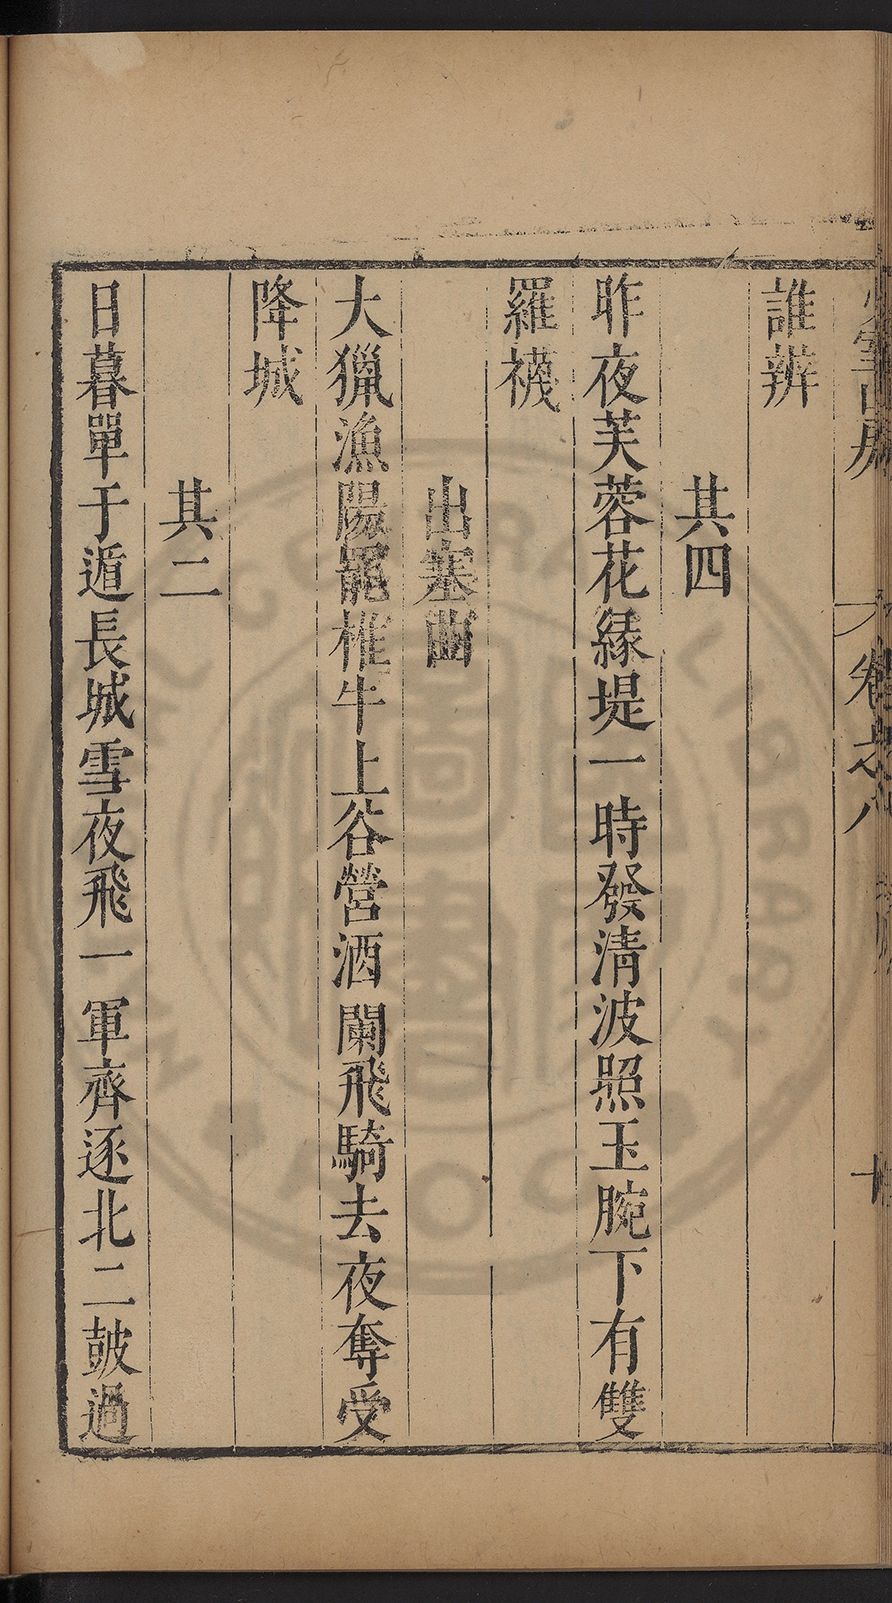 卷之八
十
誰辨
其四
昨夜芙蓉花緣堤一時發清波照玉腕下有雙
羅襪
出塞曲
大獵漁陽罷椎牛上谷營酒闌飛騎去夜奪受
降城
其二
日暮單于遁長城雪夜飛一軍齊逐北二鼓過